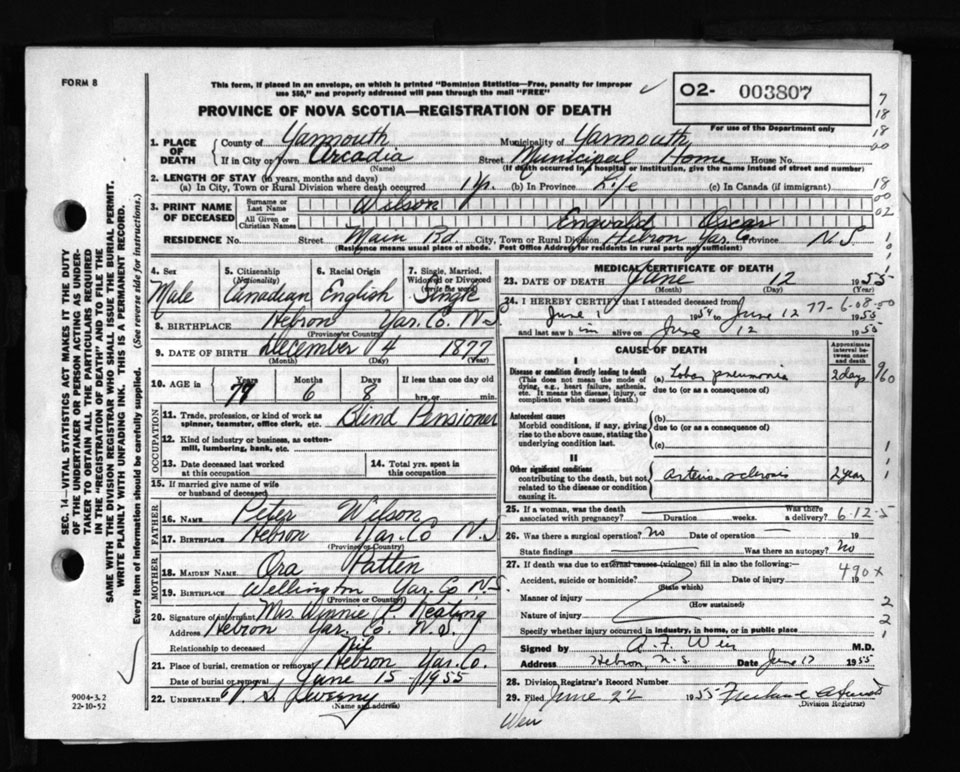 FORM 8
This form, if placed in an envelope, on which is printed "Dominion Statistics—Free, penalty for improper
use $50," and properly addressed will pass through the mail "FREE"
PROVINCE OF NOVA SCOTIA—REGISTRATION OF DEATH
O2- 003807
For use of the Department only
7
18
18
00
18
00
02
1. PLACE OF DEATH
County of Yarmouth Municipality of Yarmouth
If in City or Town Arcadia Street Municipal Home House No.
(Name) (If death occurred in a hospital or institution, give the name instead of street and number)
2. LENGTH OF STAY (in years, months and days)
(a) In City, Town or Rural Division where death occurred 1 yr. (b) In Province Life (c) In Canada (if immigrant)
3. PRINT NAME OF DECEASED
Surname or Last Name Wilson
All Given or Christian Names Engvald Oscar
RESIDENCE No. Street Main Rd. City, Town or Rural Division Hebron Yar. Co. Province N.S.
(Residence means usual place of abode. Post Office Address for residents in rural parts not sufficient)
4. Sex Male
5. Citizenship (Nationality) Canadian
6. Racial Origin English
7. Single, Married, Widowed or Divorced (write the word) Single
8. BIRTHPLACE Hebron Yar. Co. N.S.
(Province or Country)
9. DATE OF BIRTH December 4 1877
(Month) (Day) (Year)
10. AGE in Years Months Days If less than one day old
6 8 hrs. or min.
OCCUPATION
11. Trade, profession, or kind of work as spinner, teamster, office clerk, etc. Blind Pensioner
12. Kind of industry or business, as cotten-mill, lumbering, bank, etc.
13. Date deceased last worked at this occupation
14. Total yrs. spent in this occupation
15. If married give name of wife or husband of deceased
FATHER
16. NAME Peter Wilson
17. BIRTHPLACE Hebron Yar. Co N.S.
(Province or Country)
MOTHER
18. MAIDEN NAME Ora Hatten
19. BIRTHPLACE Wellington Yar. Co. N.S.
(Province or Country)
20. Signature of informant Mrs. Winnie P. Keating
Address Hebron Yar. Co. N.S.
Relationship to deceased
21. Place of burial, cremation or removal Hebron Yar. Co.
Date of burial or removal June 15 - 1955
22. UNDERTAKER V. S. Sweeny
(Name and address)
MEDICAL CERTIFICATE OF DEATH
23. DATE OF DEATH June 12 1955
(Month) (Day)
24. I HEREBY CERTIFY that I attended deceased from
June 1 1954 to June 12 1955
77-6-08-00
and last saw h im alive on June 12 1955
CAUSE OF DEATH
Approximate interval between onset and death
I
Disease or condition directly leading to death
(This does not mean the mode of dying, e.g., heart failure, asthenia, etc. It means the disease, injury, or complication which caused death.)
(a) Lobar pneumonia 2 days
due to (or as a consequence of)
Antecedent causes
Morbid conditions, if any, giving rise to the above cause, stating the underlying condition last.
(b)
due to (or as a consequence of)
(c)
II
Other significant conditions
contributing to the death, but not related to the disease or condition causing it.
Arterio sclerosis 2 year
25. If a woman, was the death associated with pregnancy? Duration weeks. Was there a delivery?
6-12-5
26. Was there a surgical operation? No Date of operation 19
State findings Was there an autopsy? No
27. If death was due to external causes (violence) fill in also the following:—
490X
Accident, suicide or homicide? Date of injury 19
(State which)
Manner of injury
(How sustained)
Nature of injury
Specify whether injury occurred in industry, in home, or in public place
Signed by A. F. Weir M.D.
Address Hebron, N.S. Date June 1955
28. Division Registrar's Record Number
29. Filed June 22 1955
(Division Registrar)
Weir
SEC. 14—VITAL STATISTICS ACT MAKES IT THE DUTY
OF THE UNDERTAKER OR PERSON ACTING AS UNDER-
TAKER TO OBTAIN ALL THE PARTICULARS REQUIRED
IN THE "REGISTRATION OF DEATH" AND TO FILE THE
SAME WITH THE DIVISION REGISTRAR WHO SHALL ISSUE THE BURIAL PERMIT.
WRITE PLAINLY WITH UNFADING INK. THIS IS A PERMANENT RECORD.
Every item of information should be carefully supplied. (See reverse side for instructions.)
9004-3.2
22-10-52